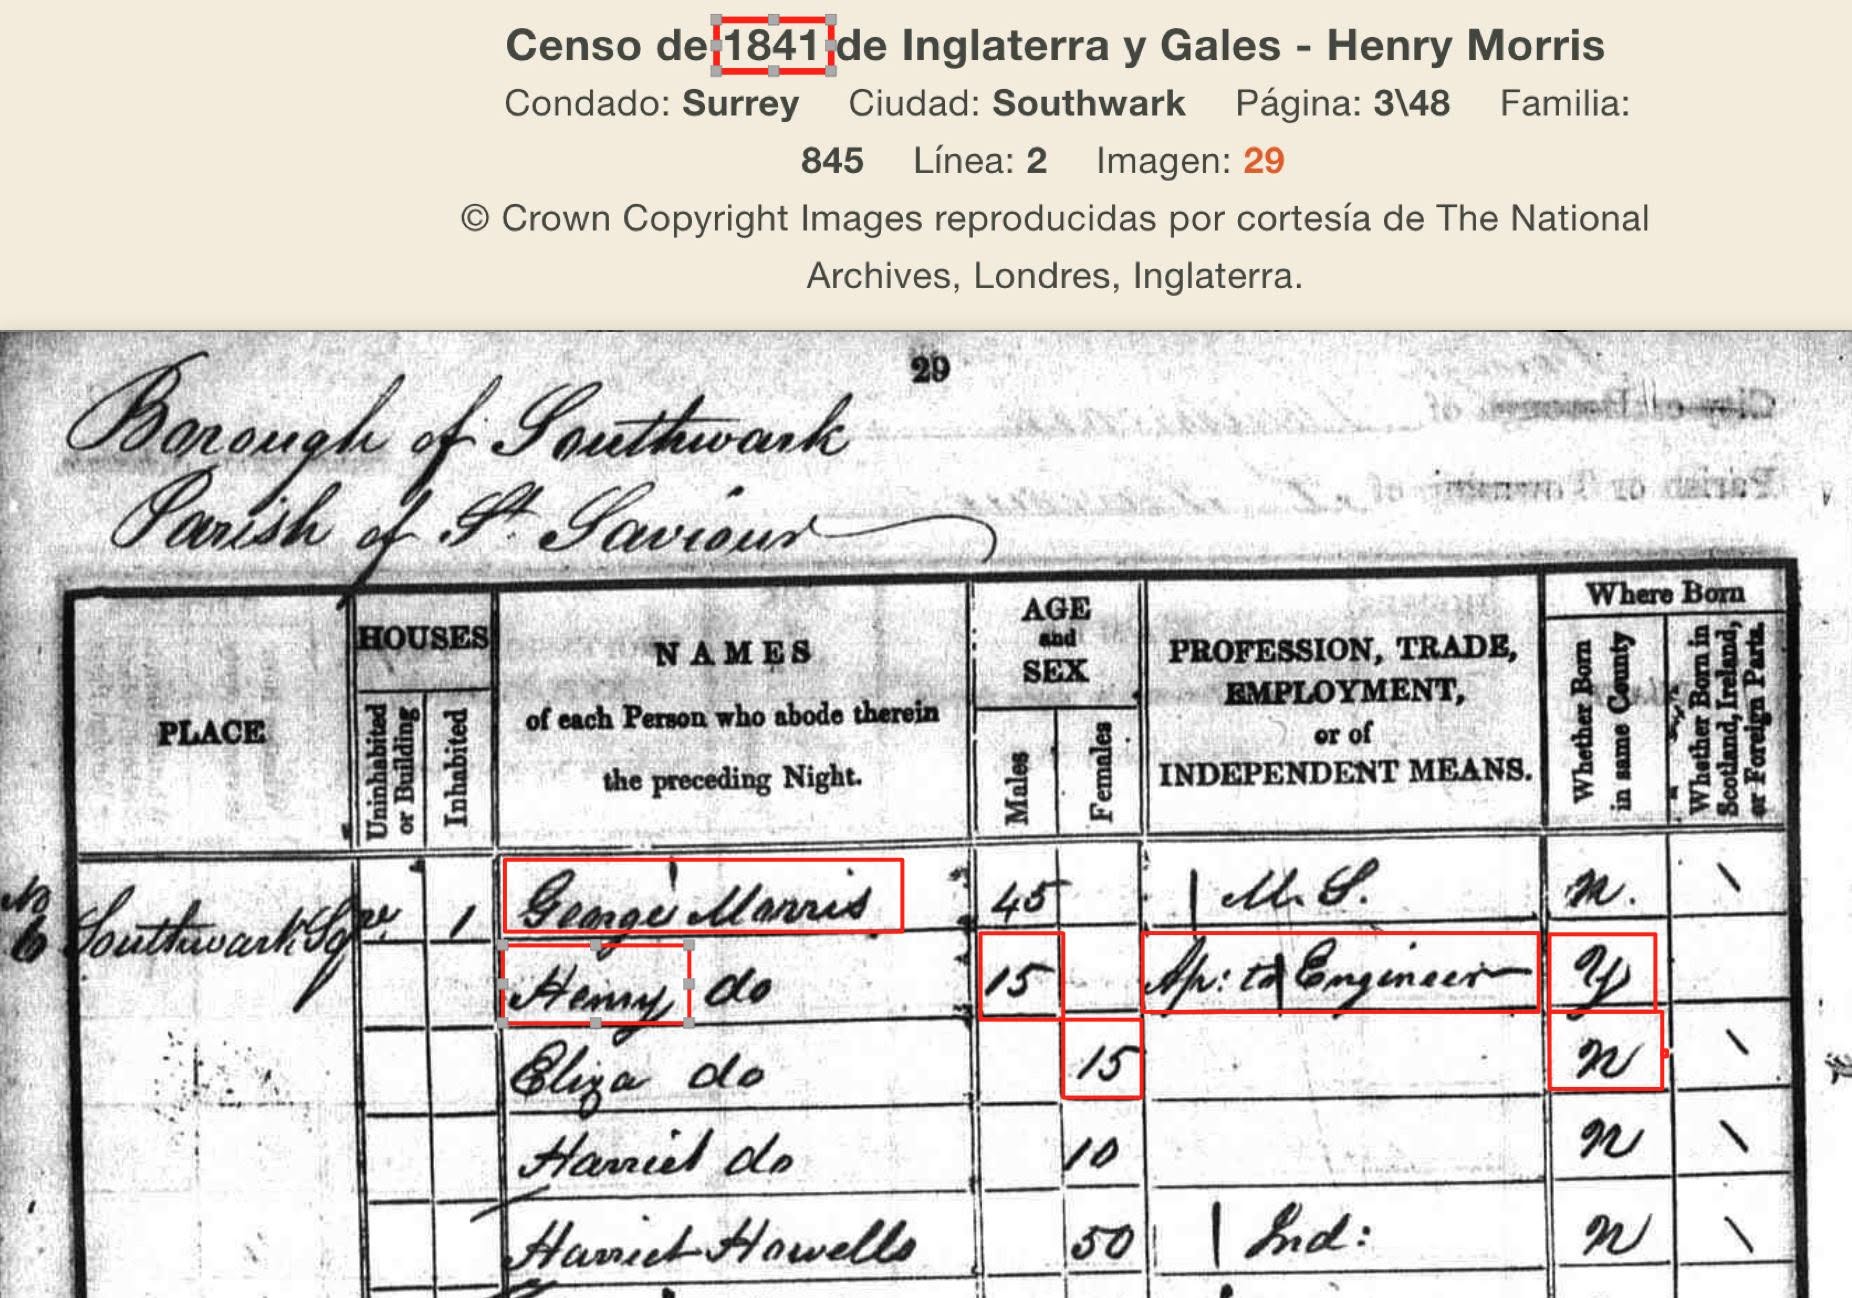 Censo de 1841 de Inglaterra y Gales - Henry Morris
Condado: Surrey Ciudad: Southwark Página: 3\48 Familia:
845 Línea: 2 Imagen: 29
© Crown Copyright Images reproducidas por cortesía de The National
Archives, Londres, Inglaterra.
29
Borough of Southwark
Parish of St. Saviour
PLACE
HOUSES
Uninhabited or Building
Inhabited
NAMES
of each Person who abode therein
the preceding Night.
AGE
and
SEX
Males
Females
PROFESSION, TRADE,
EMPLOYMENT,
or of
INDEPENDENT MEANS.
Where Born
Whether Born in same County
Whether Born in Scotland, Ireland, or Foreign Parts.
No 6 Southwark Sqre. 1 George Morris 45 M. S. N.
Henry do 15 Ap: to Engineer Y
Eliza do 15 N
Harriet do 10 N
Harriet Howells 50 Ind: N